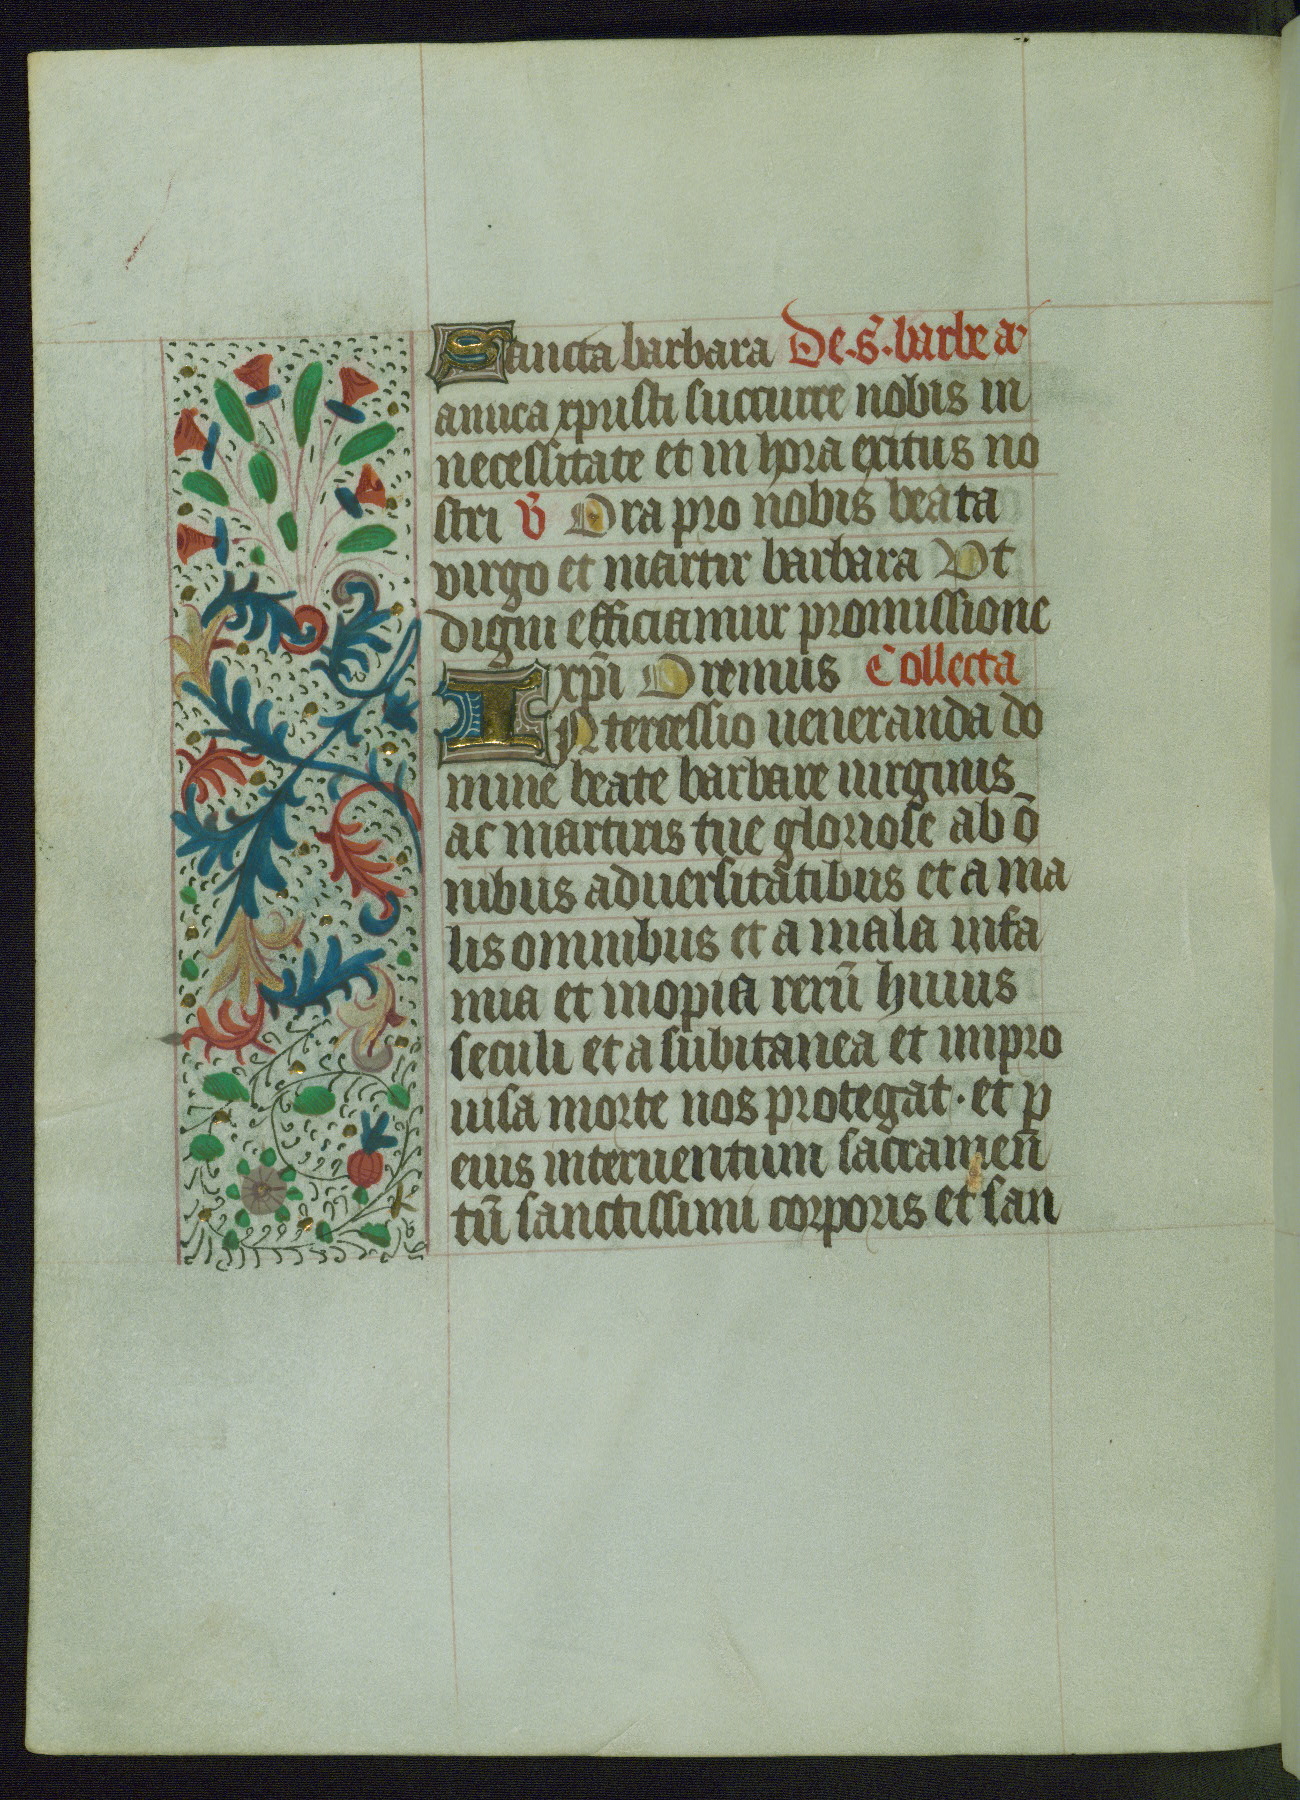 Sancta barbara De. S. barbe añ
amica xpristi succurre nobis in
necessitate et in hora exitus no
stri v̄ Ora pro nobis beata
virgo et martir barbara Vt
digni efficiamur promissione
xp̄i Oremus Collecta
INtercessio ueneranda do
mine beate barbare uirginis
ac martiris tue gloriose ab ō
nibus aduersitatibus et a ma
lis omnibus et a mala infa
mia et inopia rerū huius
seculi et a subitanea et impro
uisa morte nos protegat · et ꝑ
eius interuentum sacramen̄
tū sanctissimi corporis et san